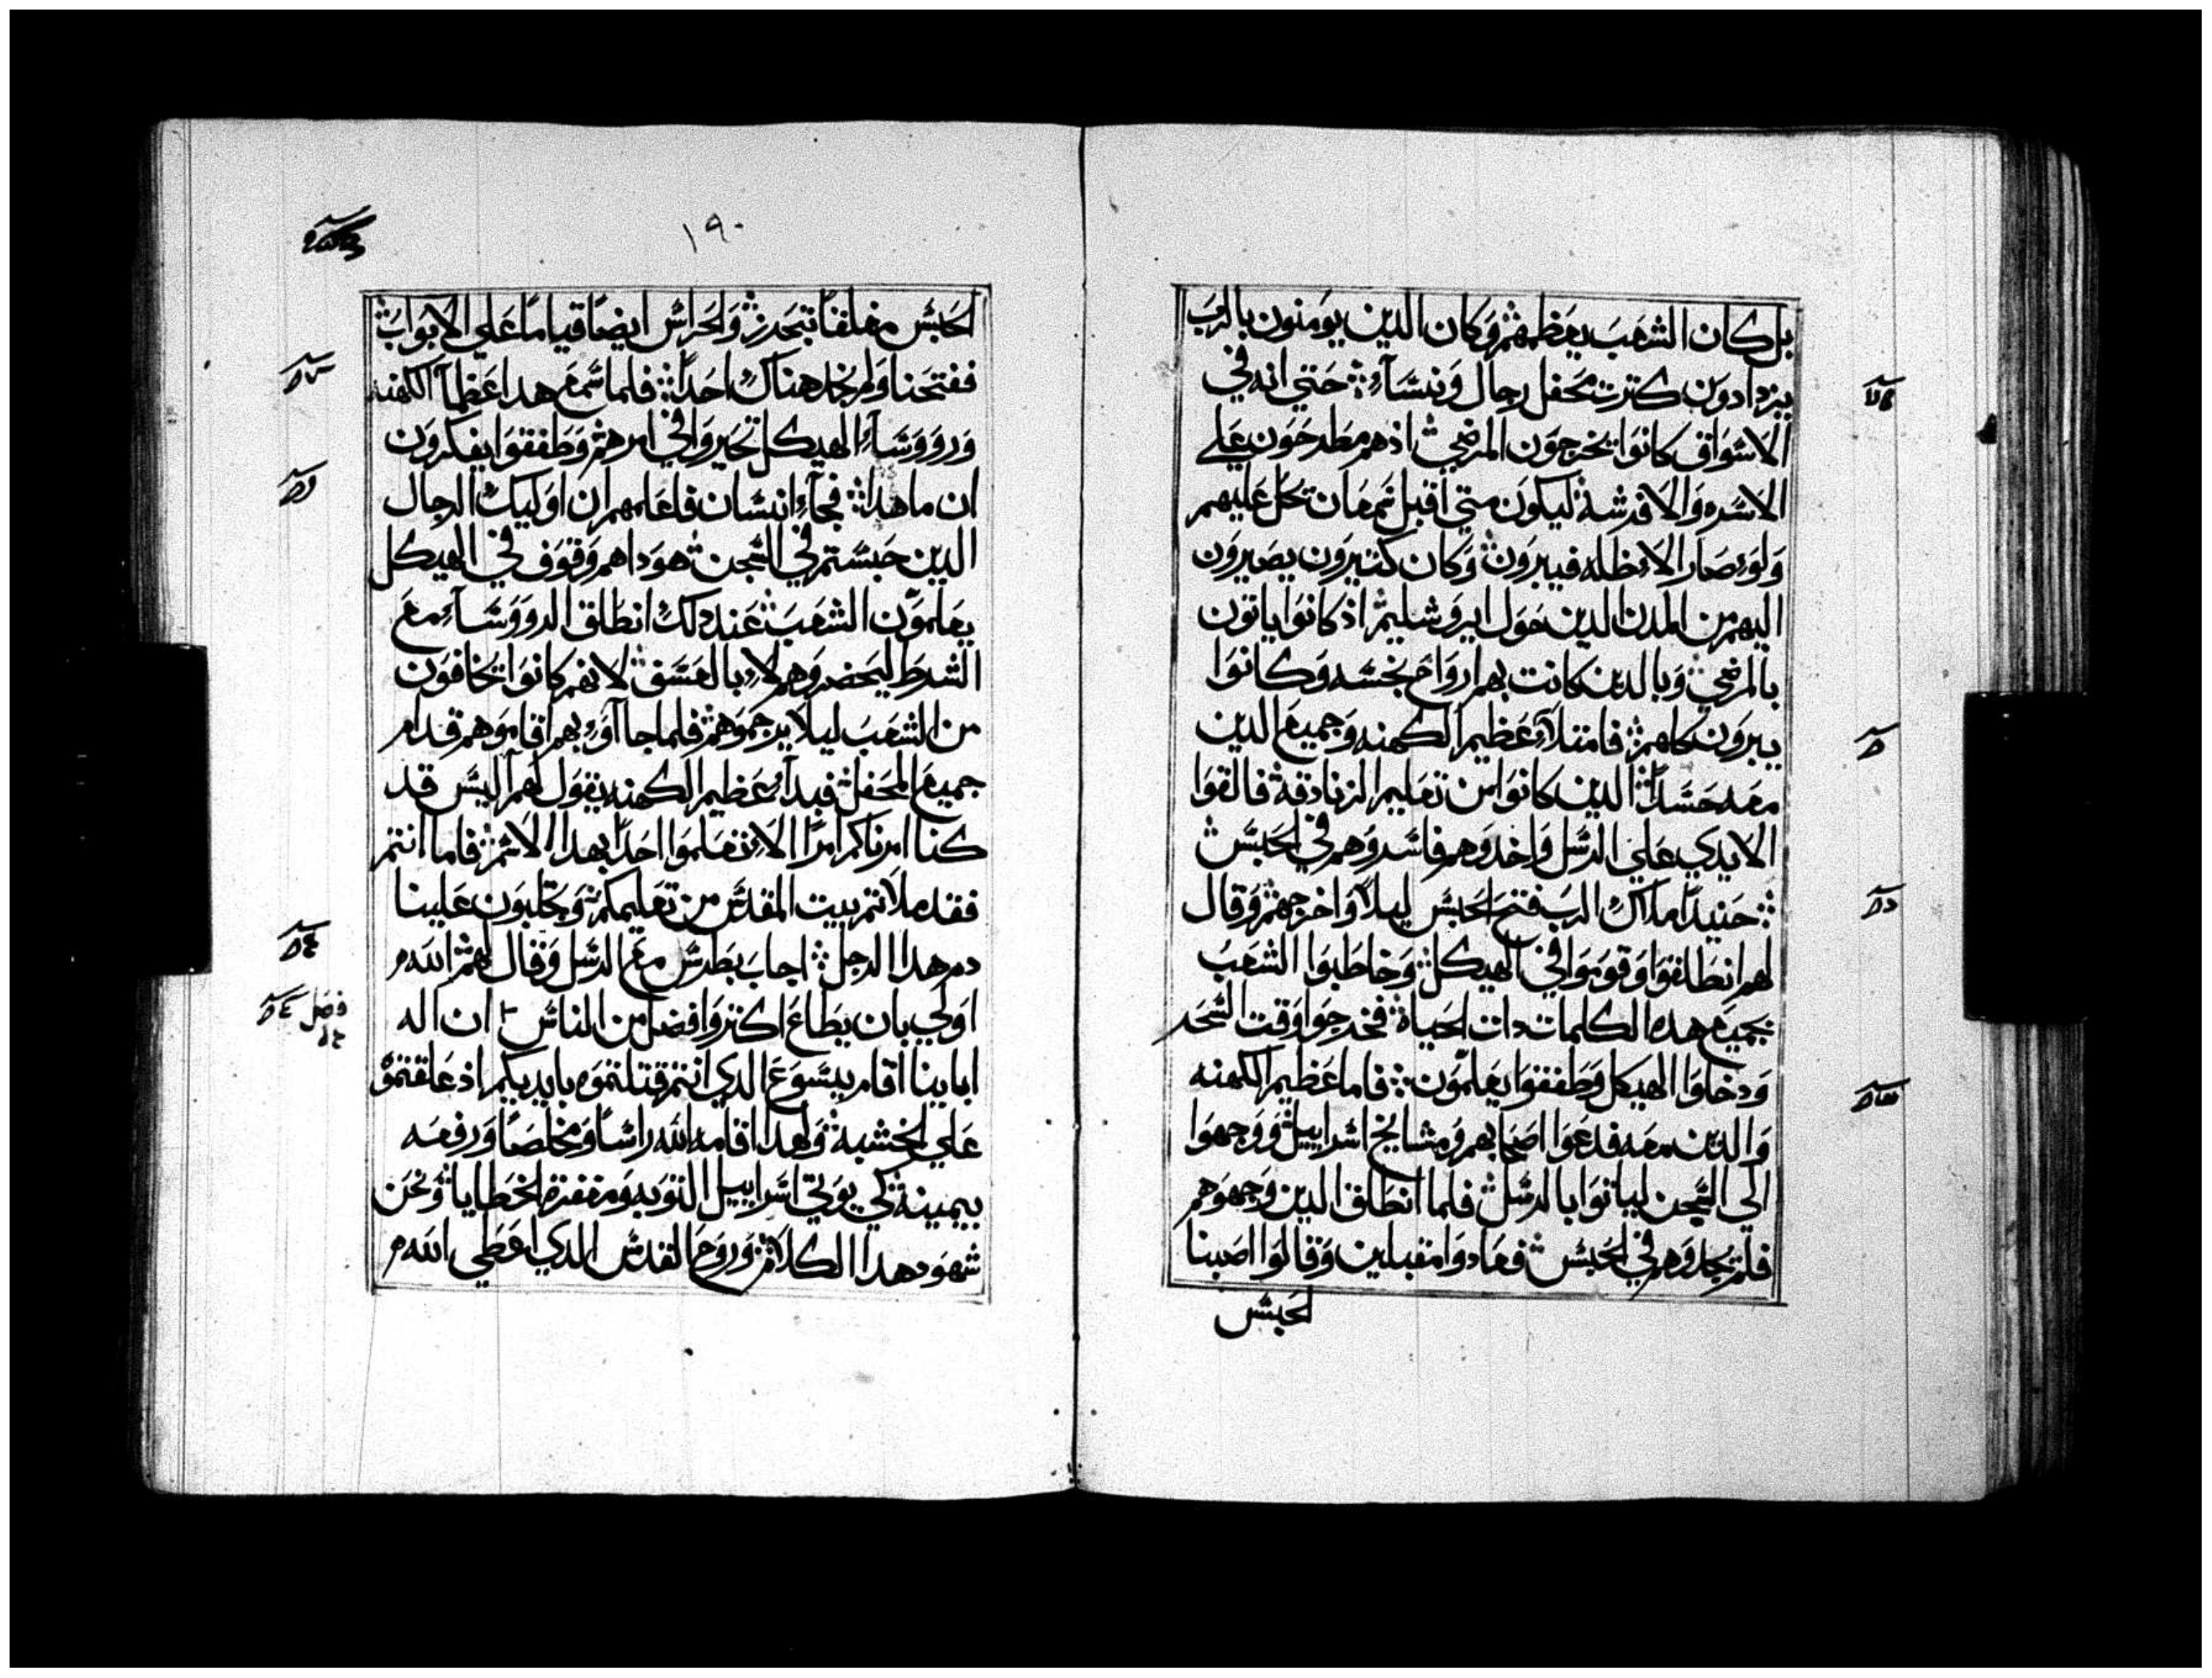 بل كان الشعب يعظمهم وكان الدين يومنون بالرب
يزدادون كترت محفل رجال ونساء حتي انه في
الاسواق كانوا يخرجون المرضي اذ هم مطرحون علي
الاسره والافرشة ليكون متي اقبل سمعان تحل عليهم
ولو صار الاظله فيبرون وكان كتيرون يصيرون
اليهم من المدن الدين حول ايروشليم اذ كانوا ياتون
بالمرضي وبالدين كانت بهم ارواح نجسه وكانوا
يبرون كلهم فامتلا عظيم الكهنه وجميع الدين
معه حسدا الدين كانوا من تعليم الزنادقة فالقوا
الايدي علي الرسل واخدوهم فاسروهم في الحبس
حنيدا ملاك الرب فتح الحبس ليلا واخرجهم وقال
لهم انطلقوا وقوموا في الهيكل وخاطبوا الشعب
بجميع هده الكلمات دات الحياة فخرجوا وقت السحر
ودخلوا الهيكل وطفقوا يعلمون فاما عظيم الكهنه
والدين معه فدعوا اصحابهم ومشايخ اسراييل ووجهوا
الي السجن لياتوا بالرسل فلما انطلق الدين وجهوهم
فلم يجدوهم في الحبس فعادوا مقبلين وقالوا اصبنا
لحبس
١٩٠
الحبس مغلقا بتحرز والحراس ايضا قياما علي الابواب
ففتحنا ولم نجد هناك احدا فلما سمع هدا عظما الكهنه
وروو وساء الهيكل تحيروا في امرهم وطفقوا يفكرون
ان ما هدا فجاء انسان فاعلمهم ان اوليك الرجال
الدين حبستم في السجن هودا هم وقوف في الهيكل
يعلمون الشعب عند دلك انطلق الرووساء مع
الشرط ليحضروهم لا بالعسف لانهم كانوا يخافون
من الشعب ليلا يرجموهم فلما جااو بهم اقاموهم قدام
جميع المحفل فبدا عظيم الكهنه يقول لهم اليس قد
كنا امرناكم امرا الا تعلموا احدا بهدا الاسم فاما انتم
فقد ملاتم بيت المقدس من تعليمكم وتجلبون علينا
دم هدا الرجل اجاب بطرس مع الرسل وقال لهم الله
فصل
اولي بان يطاع اكتر وافضل من الناس ان اله
اباينا اقام يسوع الدي انتم قتلتموه بايديكم اذ علقتموه
علي الخشبة ولهدا اقامه الله راسا ومخلصا ورفعه
بيمينة كي يوتي اسراييل التوبه ومغفرة الخطايا ونحن
شهود هدا الكلام وروح القدس الدي اعطي الله